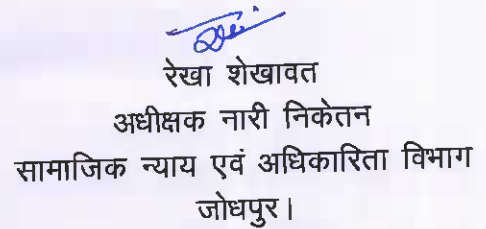 रेखा शेखावत
अधीक्षक नारी निकेतन
सामाजिक न्याय एवं अधिकारिता विभाग
जोधपुर।